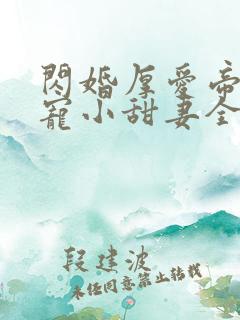 閃婚厚愛帝
寵小甜妻全
段建波
未經同意禁止轉載